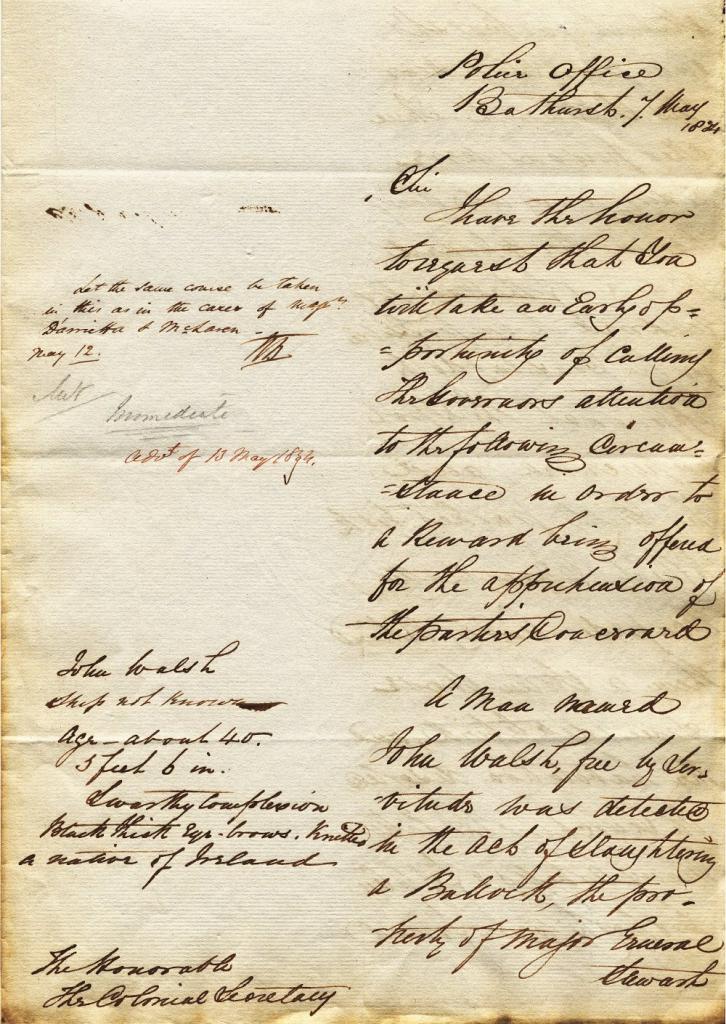 Police Office
Bathurst. 7. May
1834
Sir
I have the honor
to request that You
will take an Early op=
=portunity of calling
The Governors attention
to the following Circum=
=stance in order to
a Reward being offered
for the apprehension of
the parties Concerned
A Man named
John Walsh, free by Ser-
vitude was detected
in the act of slaughtering
a Bullock, the pro-
perty of Major General
Stewart
Let the same course be taken
in this as in the cases of
& McLaren
May 12.
Immediate
Advt of 13 May 1834.
John Walsh
Ship not known
Age - about 40.
5 feet 6 in.
Swarthy Complexion
Black thick Eye-brows. Knitted
a native of Ireland
The Honorable
The Colonial Secretary